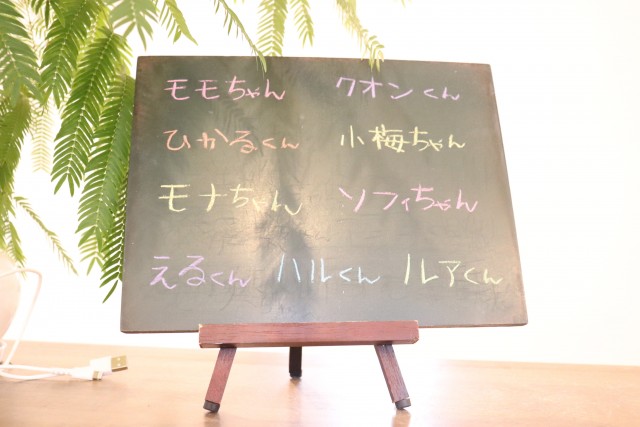 モモちゃん クオンくん
ひかるくん 小梅ちゃん
モナちゃん ソフィちゃん
えるくん ハルくん ルアくん